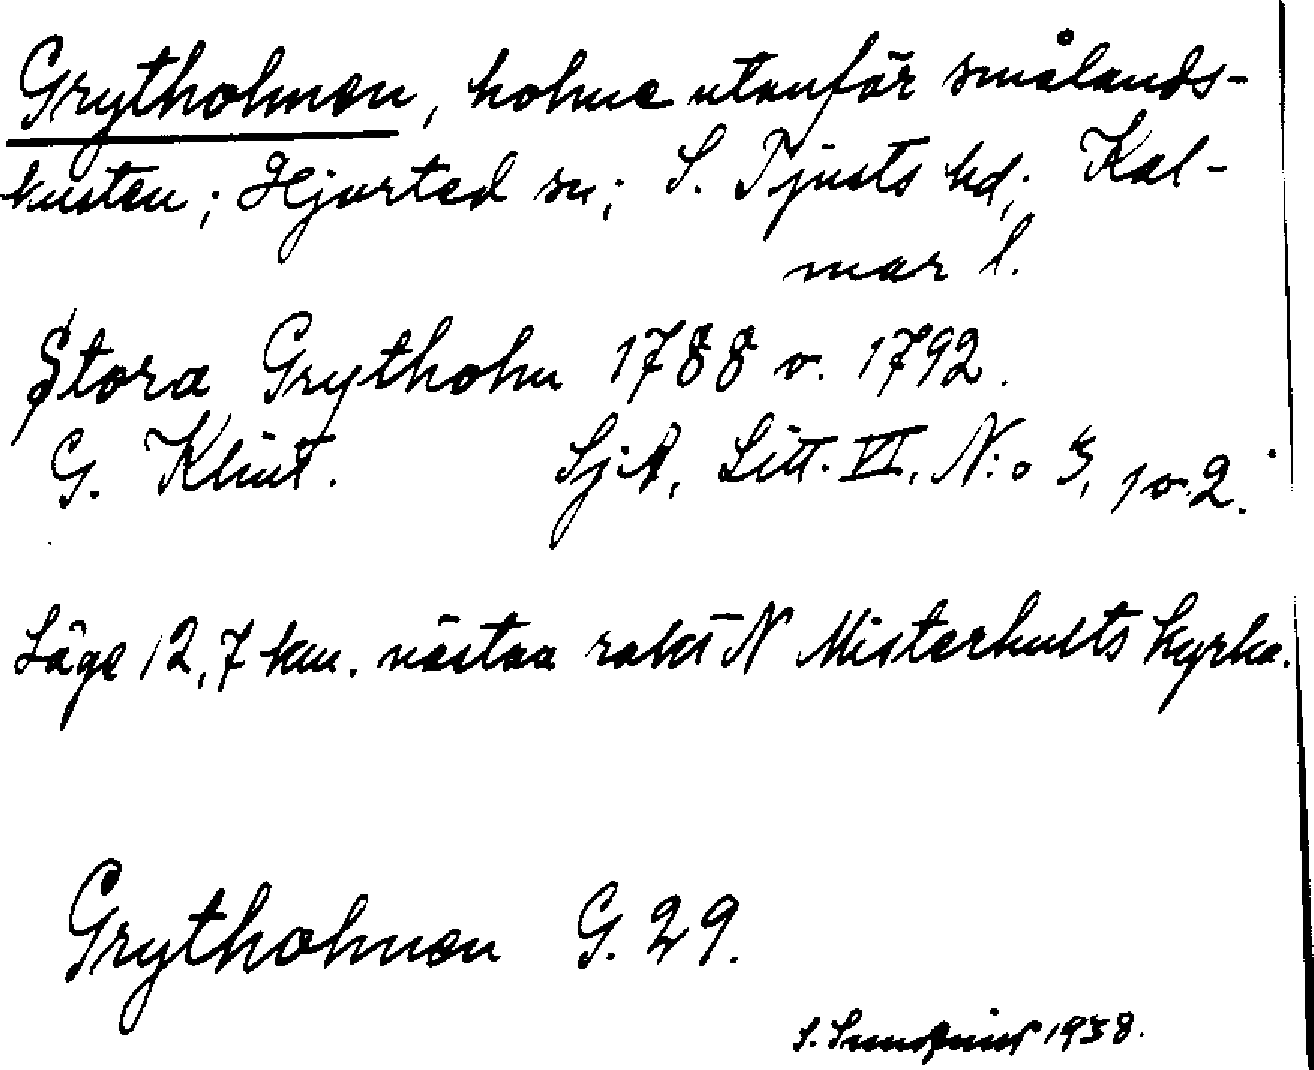 Grytholmen, holme utanför smålands-
kusten; Hjorted sn; S. Tjusts hd; Kal-
mar l.
Stora Grytholm 1788 o. 1792.
G. Klint. Sj:A, Litt. VI, N:o 3, 1 o. 2.
Läge 12,7 km. nästan rakt N Misterhults kyrka.
Grytholmen G. 29.
S. Sundqvist 1938.